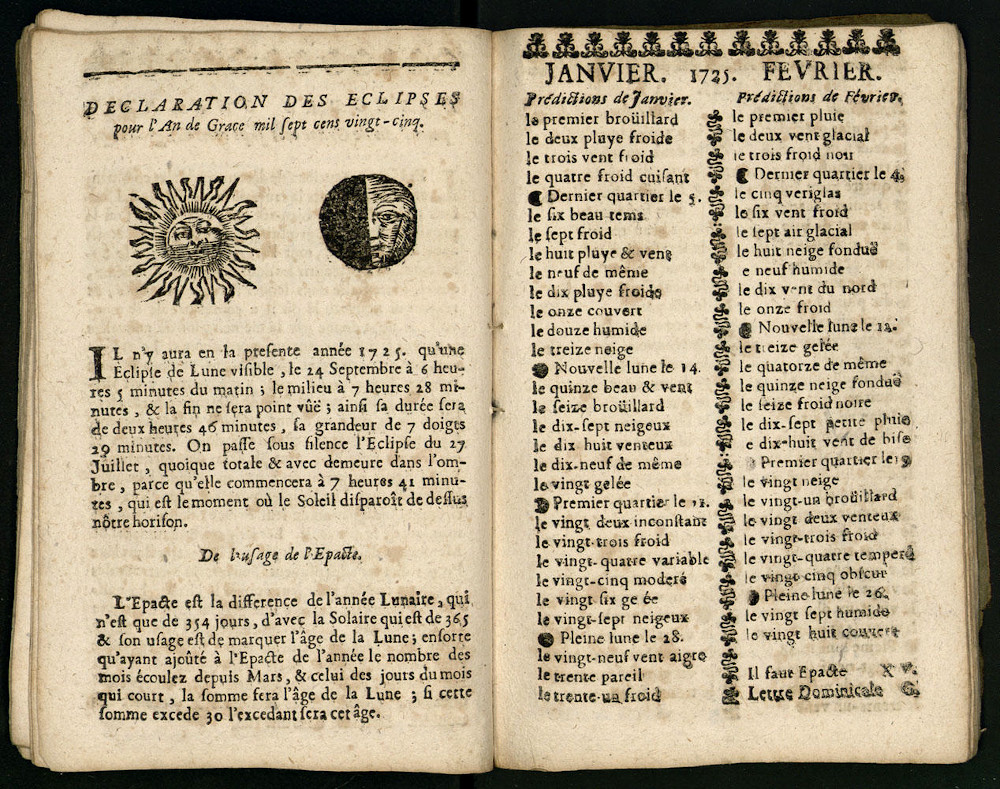 DECLARATION DES ECLIPSES
pour l'An de Grace mil sept cens vingt-cinq.
IL n'y aura en la presente année 1725. qu'une
Eclipse de Lune visible, le 24 Septembre à 6 heu-
res 5 minutes du matin; le milieu à 7 heures 28 mi-
nutes, & la fin ne sera point vûë; ainsi sa durée sera
de deux heures 46 minutes, sa grandeur de 7 doigts
29 minutes. On passe sous silence l'Eclipse du 27
Juillet, quoique totale & avec demeure dans l'om-
bre, parce qu'elle commencera à 7 heures 41 minu-
tes, qui est le moment où le Soleil disparoît de dessus
nôtre horison.
De l'usage de l'Epacte.
L'Epacte est la difference de l'année Lunaire, qui
n'est que de 354 jours, d'avec la Solaire qui est de 365
& son usage est de marquer l'âge de la Lune; ensorte
qu'ayant ajoûté à l'Epacte de l'année le nombre des
mois écoulez depuis Mars, & celui des jours du mois
qui court, la somme sera l'âge de la Lune; si cette
somme excede 30 l'excedant sera cet âge.
JANVIER. 1725. FEVRIER.
Prédictions de Janvier.
le premier broüillard
le deux pluye froide
le trois vent froid
le quatre froid cuisant
Dernier quartier le 5.
le six beau tems
le sept froid
le huit pluye & vent
le neuf de même
le dix pluye froide
le onze couvert
le douze humide
le treize neige
Nouvelle lune le 14.
le quinze beau & vent
le seize broüillard
le dix-sept neigeux
le dix huit venteux
le dix-neuf de même
le vingt gelée
Premier quartier le
le vingt deux inconstant
le vingt-trois froid
le vingt-quatre variable
le vingt-cinq moderé
le vingt six ge ée
le vingt-sept neigeux
Pleine lune le 28.
le vingt-neuf vent aigre
le trente pareil
le trente-un froid
Prédictions de Février.
le premier pluie
le deux vent glacial
le trois froid noir
Dernier quartier le 4.
le cinq verglas
le six vent froid
le sept air glacial
le huit neige fonduë
e neuf humide
le dix vent du nord
le onze froid
Nouvelle lune le 12.
le treize gelée
le quatorze de même
le quinze neige fonduë
le seize froid noire
le dix-sept petite pluie
e dix-huit vent de bise
Premier quartier le 19
le vingt neige
le vingt-un broüillard
le vingt deux venteux
le vingt-trois froid
le vingt-quatre temperé
le vingt cinq obscur
Pleine lune le 26.
le vingt sept humide
le vingt huit couvert
Il faut Epacte X V.
Lettre Dominicale G.